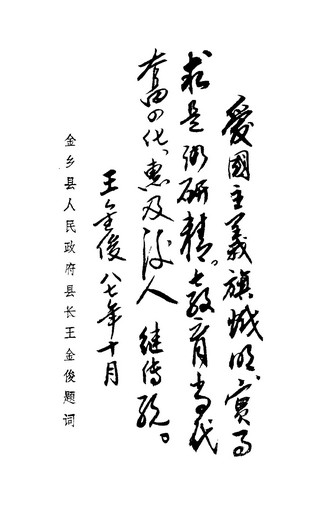 愛國主義旗幟明、實事
求是研精。教育当代
奮四化、惠及後人 继传統。
王金俊 八七年十月
金乡县人民政府县长王金俊题词